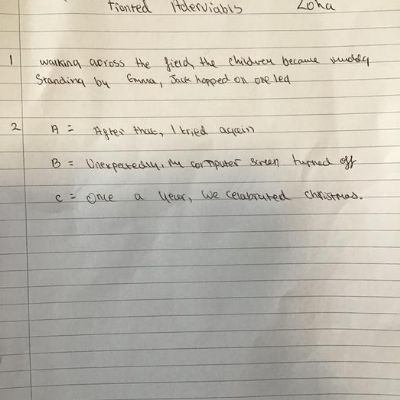 fronted Adverviabls Zoha
1 walking across the field, the children became muddy
Standing by Emma, Jack hopped on one leg
2 A = After that, I tried again
B = Unexpectedly, my computer screen turned off
C = Once a year, we celabruted christmas.